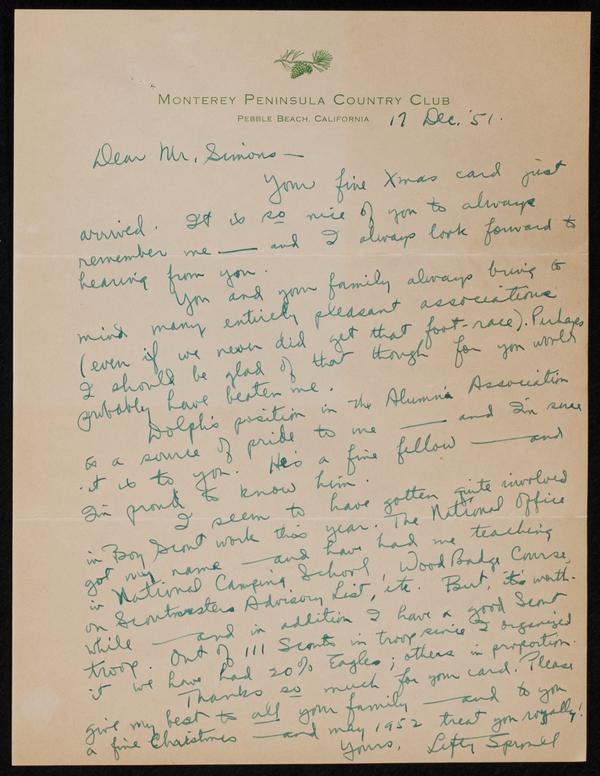 MONTEREY PENINSULA COUNTRY CLUB
PEBBLE BEACH, CALIFORNIA
17 Dec. '51.
Dear Mr. Simons —
Your fine Xmas card just
arrived. It is so nice of you to always
remember me — and I always look forward to
hearing from you.
You and your family always bring to
mind many entirely pleasant associations
(even if we never did get that foot-race). Perhaps
I should be glad of that though for you would
probably have beaten me.
Dolph's position in the Alumni Association
is a source of pride to me — and I'm sure
it is to you. He's a fine fellow — and
I'm proud to know him.
I seem to have gotten quite involved
in Boy Scout work this year. The National Office
got my name — and have had me teaching
in National Camping School, Wood Badge Course,
on Scoutmasters Advisory List, etc. But, it's worth-
while — and in addition I have a good Scout
troop. Out of 111 Scouts in troop since I organized
it we have had 20% Eagles; others in proportion.
Thanks so much for your card. Please
give my best to all your family — and to you
a fine Christmas — and may 1952 treat you royally!
Yours, Lefty Sproull